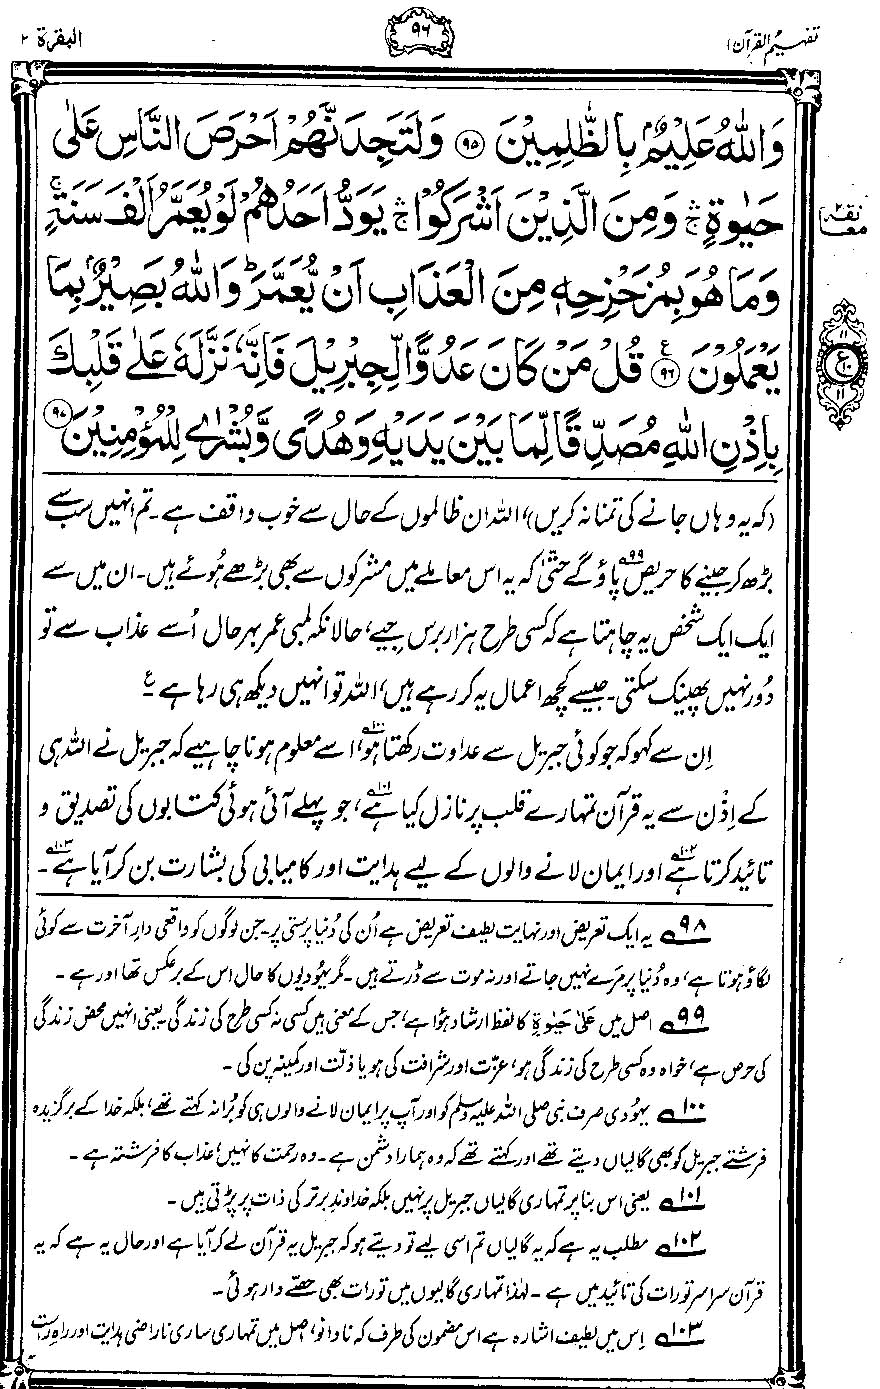 تفہیم القرآن ۱
۹۶
البقرۃ ۲
وَاللّٰهُ عَلِيْمٌۢ بِالظّٰلِمِيْنَ ۹۵ وَلَتَجِدَنَّهُمْ اَحْرَصَ النَّاسِ عَلٰى
حَيٰوةٍ ۛ وَمِنَ الَّذِيْنَ اَشْرَكُوْا ۛ يَوَدُّ اَحَدُهُمْ لَوْ يُعَمَّرُ اَلْفَ سَنَةٍ ۚ
وَمَا هُوَ بِمُزَحْزِحِهٖ مِنَ الْعَذَابِ اَنْ يُّعَمَّرَ ؕ وَاللّٰهُ بَصِيْرٌۢ بِمَا
يَعْمَلُوْنَ ۹۶ ع قُلْ مَنْ كَانَ عَدُوًّا لِّجِبْرِيْلَ فَاِنَّهٗ نَزَّلَهٗ عَلٰى قَلْبِكَ
بِاِذْنِ اللّٰهِ مُصَدِّقًا لِّمَا بَيْنَ يَدَيْهِ وَهُدًى وَّبُشْرٰى لِلْمُؤْمِنِيْنَ ۹۷
۱۱
ع ۱۰
۱۱
(کہ یہ وہاں جانے کی تمنا نہ کریں)، اللہ ان ظالموں کے حال سے خوب واقف ہے۔ تم انہیں سب سے
بڑھ کر جینے کا حریص ۹۹ پاؤ گے حتّٰی کہ یہ اس معاملے میں مشرکوں سے بھی بڑھے ہُوئے ہیں۔ ان میں سے
ایک ایک شخص یہ چاہتا ہے کہ کسی طرح ہزار برس جیے، حالانکہ لمبی عمر بہرحال اُسے عذاب سے تو
دُور نہیں پھینک سکتی۔ جیسے کچھ اعمال یہ کر رہے ہیں، اللہ تو انہیں دیکھ ہی رہا ہے۔ ع
اِن سے کہو کہ جو کوئی جبریل سے عداوت رکھتا ہو ۱۰۰، اسے معلوم ہونا چاہیے کہ جبریل نے اللہ ہی
کے اِذْن سے یہ قرآن تمہارے قلب پر نازل کیا ہے ۱۰۱، جو پہلے آئی ہوئی کتابوں کی تصدیق و
تائید کرتا ہے ۱۰۲ اور ایمان لانے والوں کے لیے ہدایت اور کامیابی کی بشارت بن کر آیا ہے ۱۰۳۔
۹۸ یہ ایک تعریض اور نہایت لطیف تعریض ہے اُن کی دُنیا پرستی پر۔ جن لوگوں کو واقعی دارِ آخرت سے کوئی
لگاؤ ہوتا ہے، وہ دُنیا پر مرے نہیں جاتے اور نہ موت سے ڈرتے ہیں۔ مگر یہُودیوں کا حال اس کے برعکس تھا اور ہے۔
۹۹ اصل میں عَلٰی حَیٰوۃٍ کا لفظ ارشاد ہوا ہے، جس کے معنی ہیں کسی نہ کسی طرح کی زندگی۔ یعنی انہیں محض زندگی
کی حرص ہے، خواہ وہ کسی طرح کی زندگی ہو، عزّت اور شرافت کی ہو یا ذلّت اور کمینہ پن کی۔
۱۰۰ یہُودی صرف نبی صلی اللہ علیہ وسلم کو اور آپ پر ایمان لانے والوں ہی کو بُرا نہ کہتے تھے، بلکہ خدا کے برگزیدہ
فرشتے جبریل کو بھی گالیاں دیتے تھے اور کہتے تھے کہ وہ ہمارا دشمن ہے۔ وہ رحمت کا نہیں، عذاب کا فرشتہ ہے۔
۱۰۱ یعنی اس بنا پر تمہاری گالیاں جبریل پر نہیں بلکہ خداوندِ برتر کی ذات پر پڑتی ہیں۔
۱۰۲ مطلب یہ ہے کہ یہ گالیاں تم اسی لیے تو دیتے ہو کہ جبریل یہ قرآن لے کر آیا ہے اور حال یہ ہے کہ یہ
قرآن سراسر تورات کی تائید میں ہے۔ لہٰذا تمہاری گالیوں میں تورات بھی حصّے دار ہوئی۔
۱۰۳ اِس میں لطیف اشارہ ہے اس مضمون کی طرف کہ نادانو، اصل میں تمہاری ساری ناراضی ہدایت اور راہِ راست